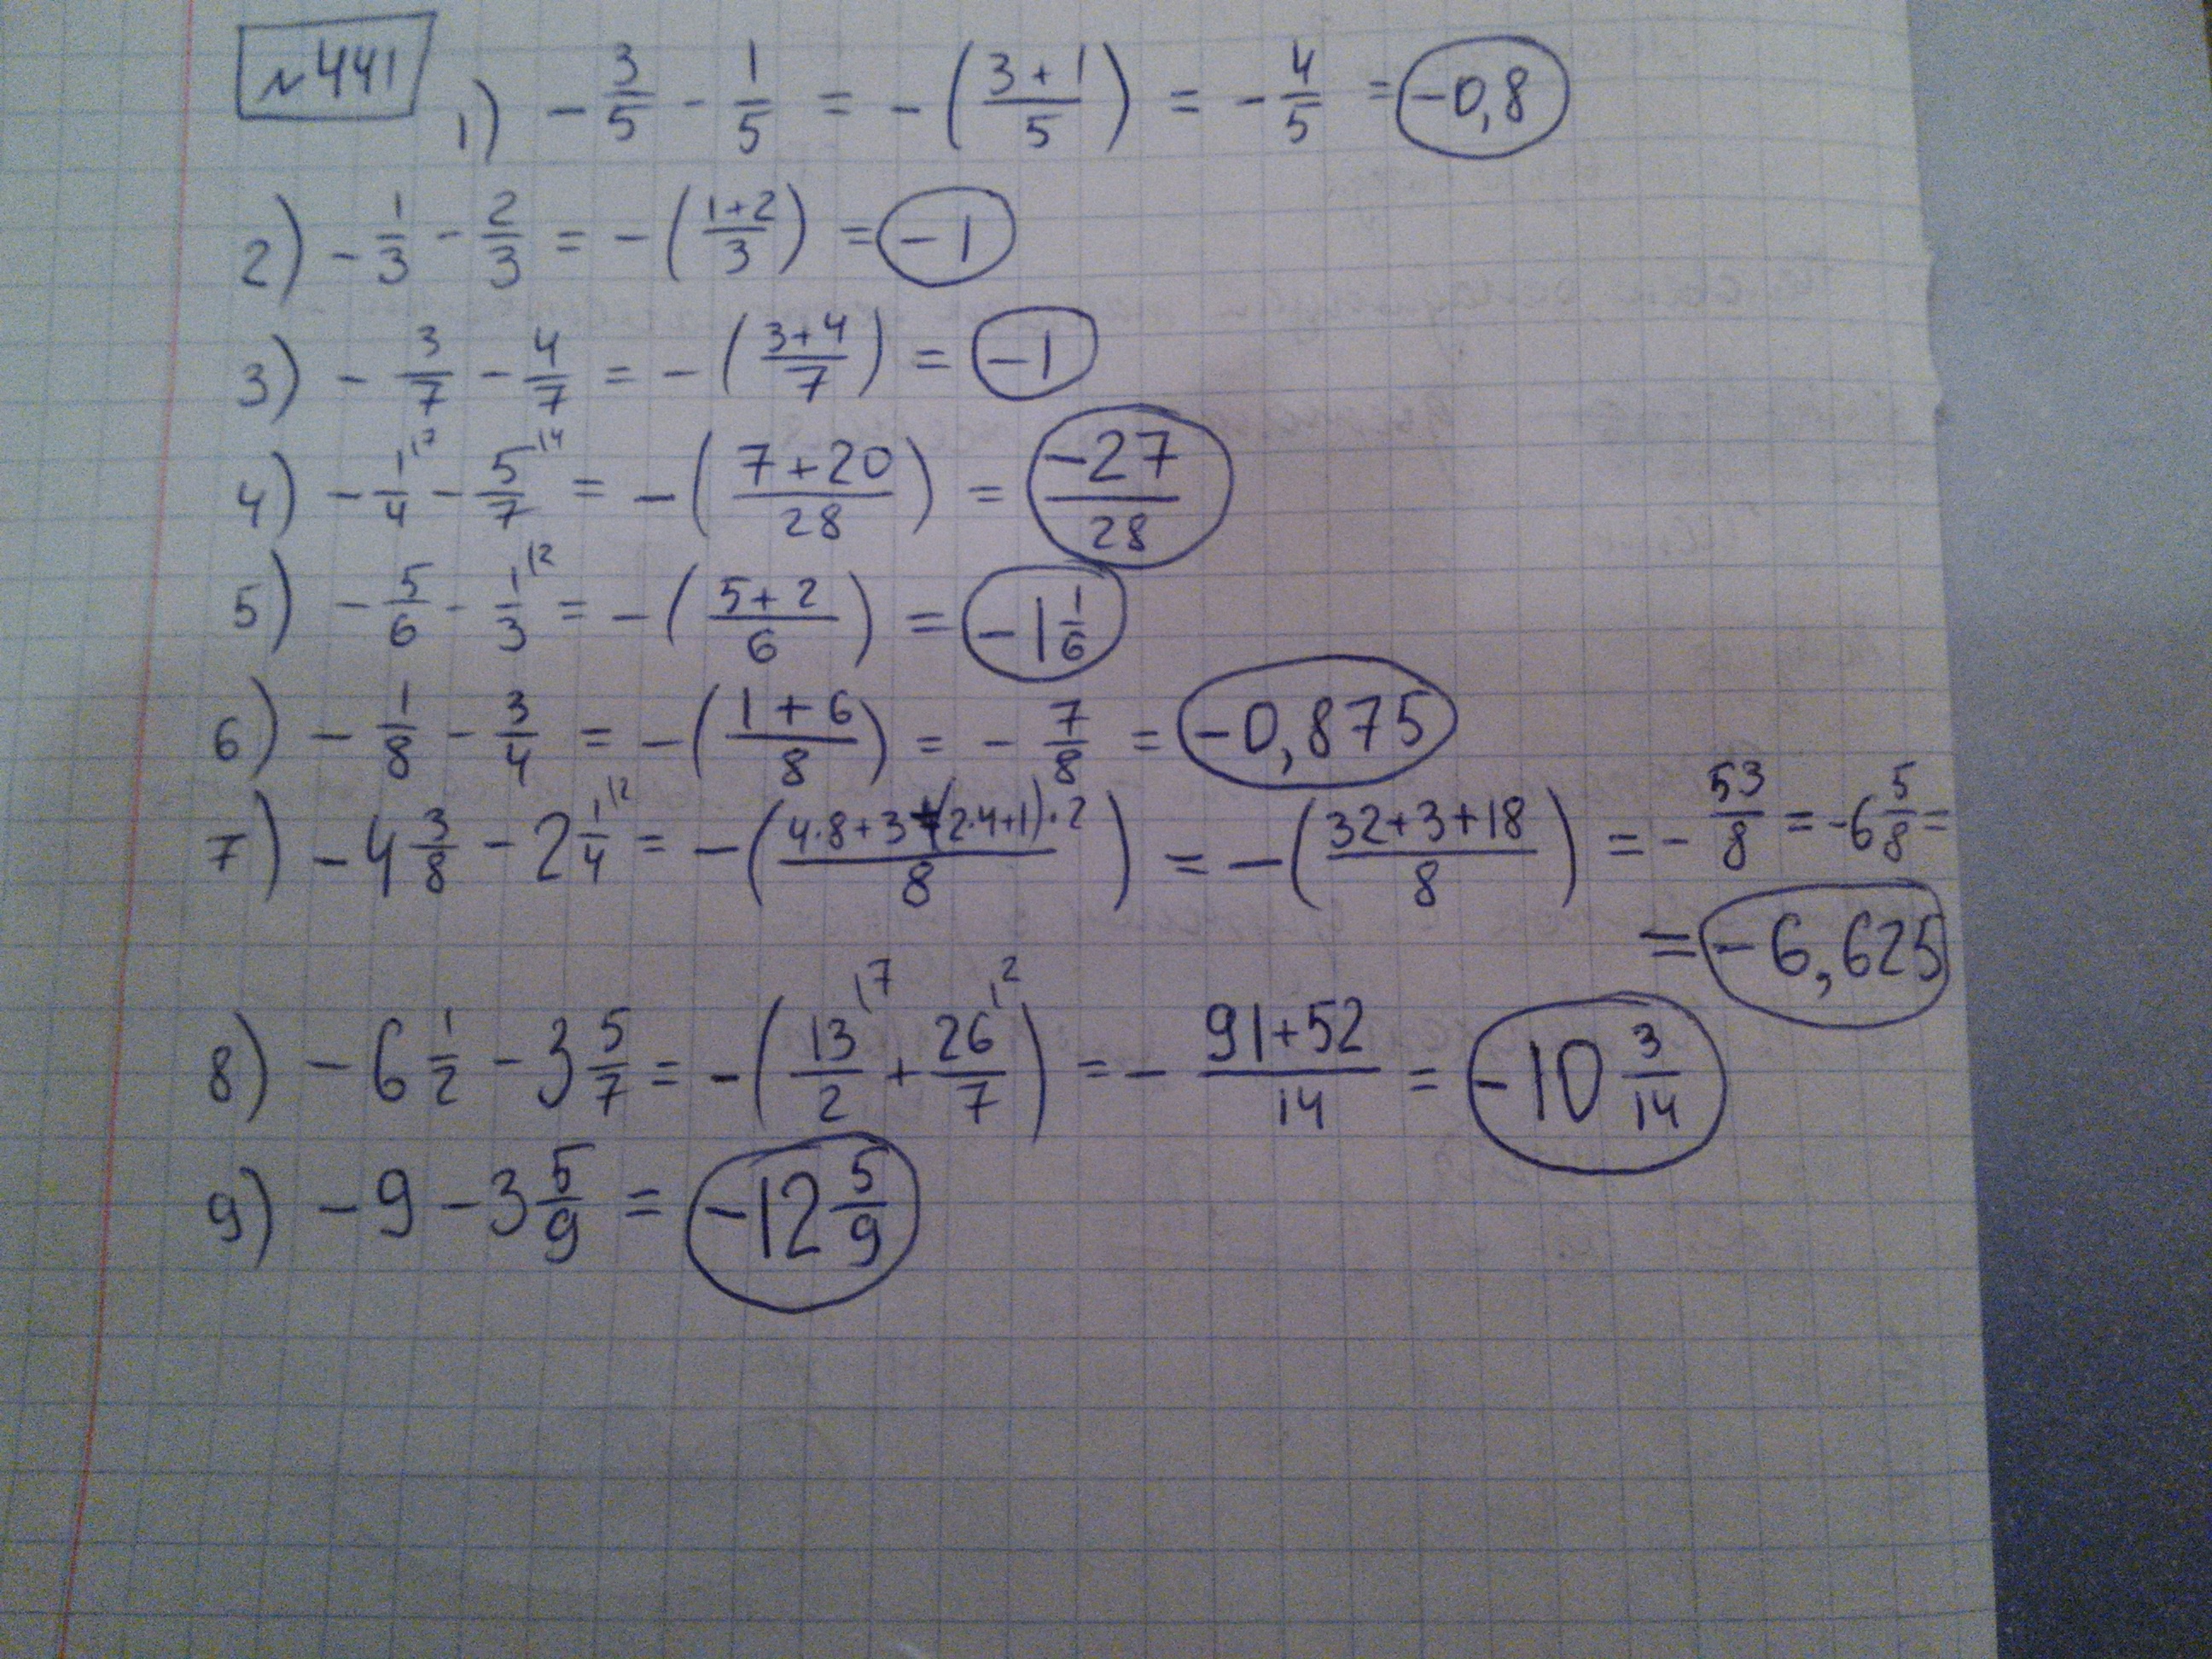 №441
1) - 3/5 - 1/5 = - ( (3+1)/5 ) = - 4/5 = -0,8
2) - 1/3 - 2/3 = - ( (1+2)/3 ) = -1
3) - 3/7 - 4/7 = - ( (3+4)/7 ) = -1
4) - 1/4 |7 - 5/7 |4 = - ( (7+20)/28 ) = -27/28
5) - 5/6 - 1/3 |2 = - ( (5+2)/6 ) = -1 1/6
6) - 1/8 - 3/4 = - ( (1+6)/8 ) = - 7/8 = -0,875
7) - 4 3/8 - 2 1/4 |2 = - ( (4·8+3+(2·4+1)·2)/8 ) = - ( (32+3+18)/8 ) = - 53/8 = -6 5/8 =
= -6,625
8) - 6 1/2 - 3 5/7 = - ( 13/2 |7 + 26/7 |2 ) = - (91+52)/14 = -10 3/14
9) - 9 - 3 5/9 = -12 5/9